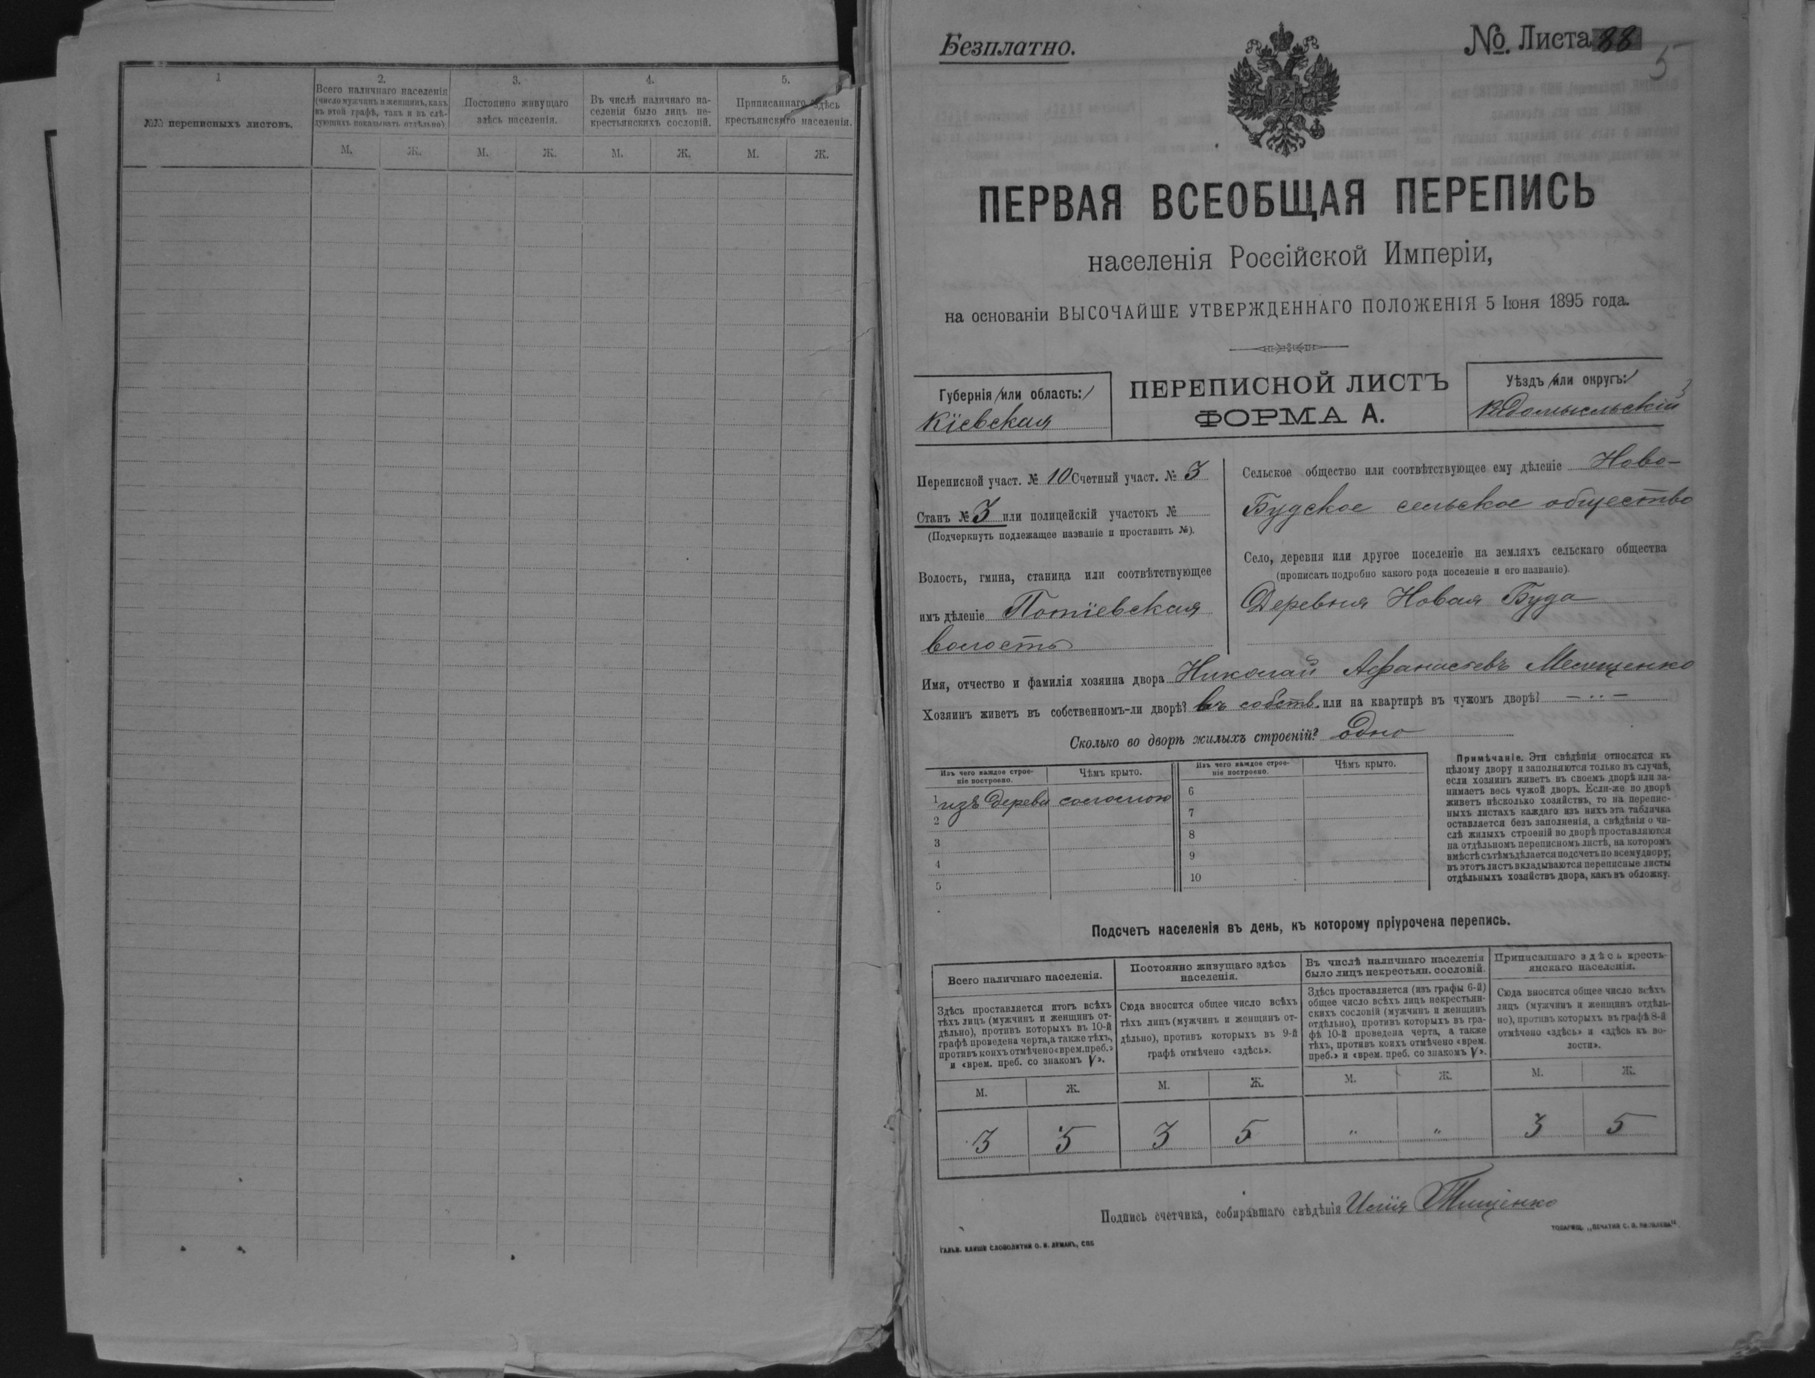 1
2.
3.
4.
5.
№№ переписныхъ листовъ.
Всего наличнаго населенія
(число мужчинъ и женщинъ, какъ
въ этой графѣ, такъ и въ слѣ-
дующихъ показывать отдѣльно)
Постоянно живущаго
здѣсь населенія.
Въ числѣ наличнаго на-
селенія было лицъ не-
крестьянскихъ сословій.
Приписаннаго здѣсь
крестьянскаго населенія.
М. Ж. М. Ж. М. Ж. М. Ж.
Безплатно.
№ Листа 88
5
ПЕРВАЯ ВСЕОБЩАЯ ПЕРЕПИСЬ
населенія Россійской Имперіи,
на основаніи ВЫСОЧАЙШЕ УТВЕРЖДЕННАГО ПОЛОЖЕНІЯ 5 Іюня 1895 года.
Губернія /или область:/
Кіевская
ПЕРЕПИСНОЙ ЛИСТЪ
ФОРМА А.
Уѣздъ /или округъ:/
Радомысльскій
Переписной участ. № 10 Счетный участ. № 3
Станъ № 3 или полицейскій участокъ №
(Подчеркнуть подлежащее названіе и проставить №).
Волость, гмина, станица или соотвѣтствующее
имъ дѣленіе Потіевская
волость
Сельское общество или соотвѣтствующее ему дѣленіе Ново-
Будское сельское общество
Село, деревня или другое поселеніе на земляхъ сельскаго общества
(прописать подробно какого рода поселеніе и его названіе).
Деревня Новая Буда
Имя, отчество и фамилія хозяина двора Николай Афанасьевъ
Хозяинъ живетъ въ собственномъ-ли дворѣ? въ собств. или на квартирѣ въ чужомъ дворѣ? — .. —
Сколько во дворѣ жилыхъ строеній? одно
Изъ чего каждое строе-
ніе построено.
Чѣмъ крыто.
Изъ чего каждое строе-
ніе построено.
Чѣмъ крыто.
1 изъ дерева соломою
2
3
4
5
6
7
8
9
10
Примѣчаніе. Эти свѣдѣнія относятся къ
цѣлому двору и заполняются только въ случаѣ,
если хозяинъ живетъ въ своемъ дворѣ или за-
нимаетъ весь чужой дворъ. Если-же во дворѣ
живетъ нѣсколько хозяйствъ, то на перепис-
ныхъ листахъ каждаго изъ нихъ эта табличка
оставляется безъ заполненія, а свѣдѣнія о чи-
слѣ жилыхъ строеній во дворѣ проставляются
на отдѣльномъ переписномъ листѣ, на которомъ
вмѣстѣ съ тѣмъ дѣлается подсчетъ по всему двору;
въ этотъ листъ вкладываются переписные листы
отдѣльныхъ хозяйствъ двора, какъ въ обложку.
Подсчетъ населенія въ день, къ которому пріурочена перепись.
Всего наличнаго населенія.
Здѣсь проставляется итогъ всѣхъ
тѣхъ лицъ (мужчинъ и женщинъ от-
дѣльно), противъ которыхъ въ 10-й
графѣ проведена черта, а также тѣхъ,
противъ коихъ отмѣчено «врем. преб.»
и «врем. преб. со знакомъ V».
Постоянно живущаго здѣсь
населенія.
Сюда вносится общее число всѣхъ
тѣхъ лицъ (мужчинъ и женщинъ от-
дѣльно), противъ которыхъ въ 9-й
графѣ отмѣчено «здѣсь».
Въ числѣ наличнаго населенія
было лицъ некрестьян. сословій.
Здѣсь проставляется (изъ графы 6-й)
общее число всѣхъ лицъ некрестьян-
скихъ сословій (мужчинъ и женщинъ
отдѣльно), противъ которыхъ въ гра-
фѣ 10-й проведена черта, а также
тѣхъ, противъ коихъ отмѣчено «врем.
преб.» и «врем. преб. со знакомъ V».
Приписаннаго здѣсь кресть-
янскаго населенія.
Сюда вносится общее число всѣхъ
лицъ (мужчинъ и женщинъ отдѣль-
но), противъ которыхъ въ графѣ 8-й
отмѣчено «здѣсь» и «здѣсь къ во-
лости».
М. Ж. М. Ж. М. Ж. М. Ж.
3 5 3 5 " " 3 5
Подпись счетчика, собиравшаго свѣдѣнія Илія Тищенко
ГАЛЬВ. КЛИШЕ СЛОВОЛИТНИ О. И. ЛЕМАНЪ, СПБ.